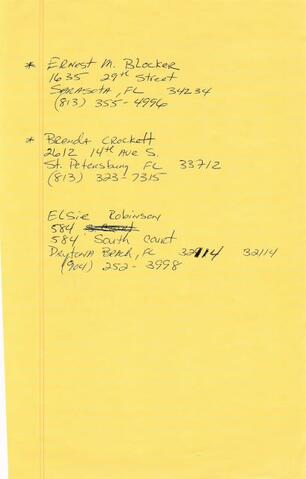 * ERNEST M. BLOCKER
1635 29th Street
SARASOTA, FL 34234
(813) 355-4996
* Brenda Crockett
2612 14th Ave S.
St. Petersburg FL 33712
(813) 323-7315
ELSie Robinson
584
584 South Court
DAYTONA BEACH, FL 32114 32114
(904) 252-3998